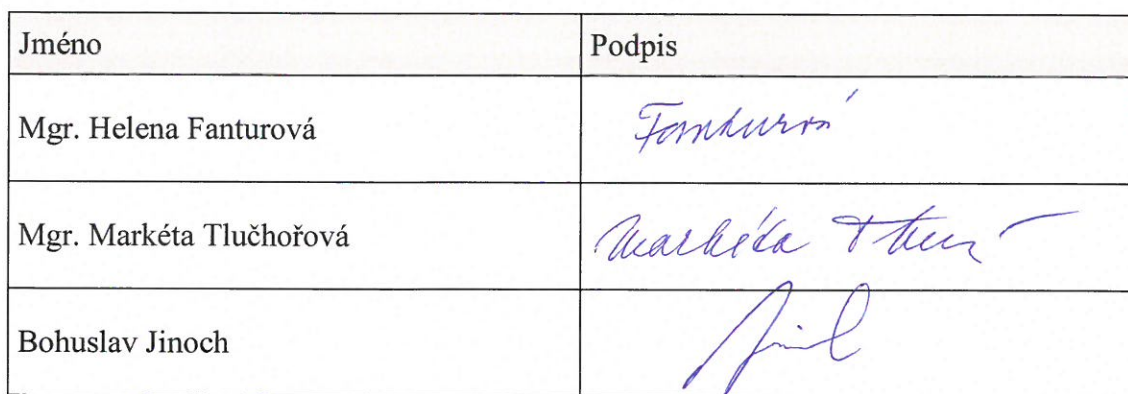 Jméno Podpis
Mgr. Helena Fanturová Fanturová
Mgr. Markéta Tlučhořová Markéta
Bohuslav Jinoch